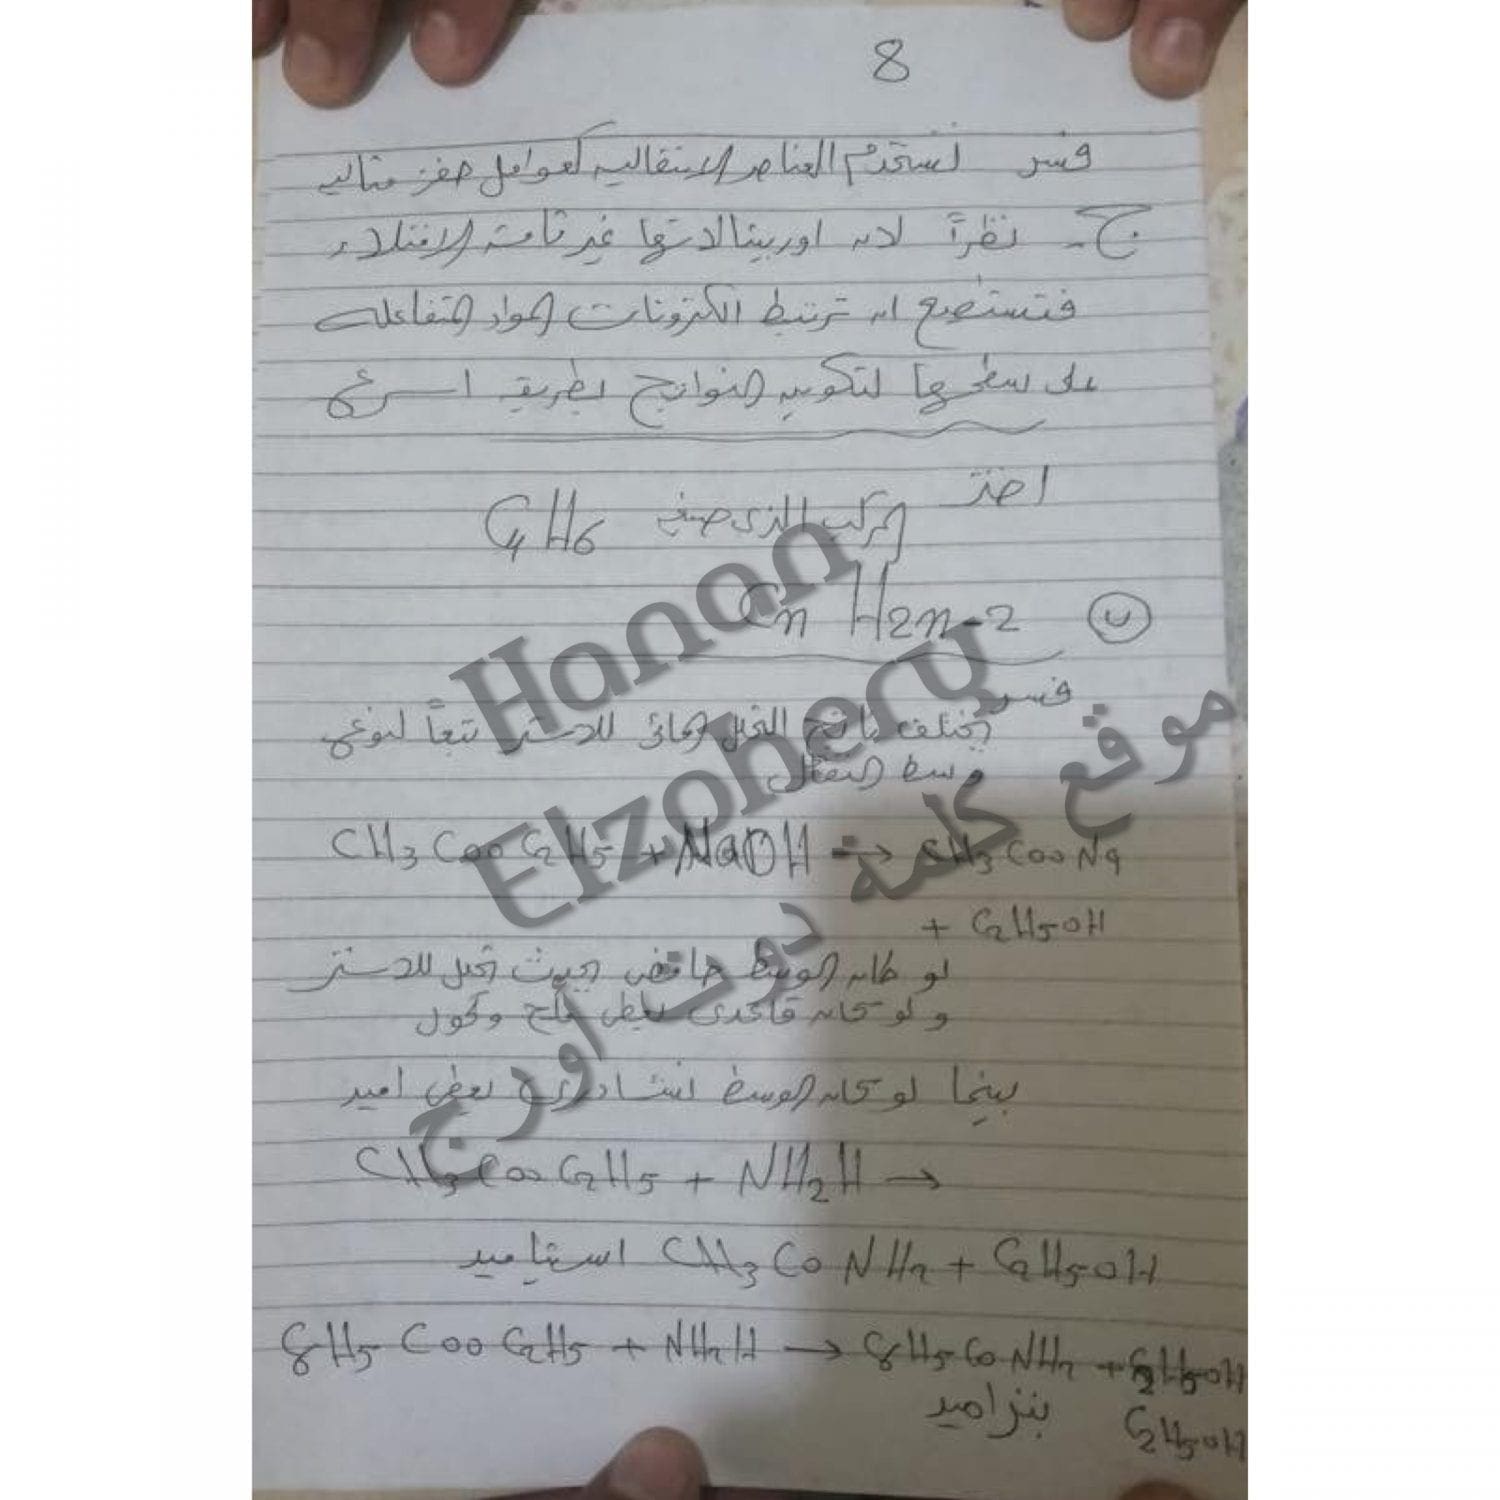 8
فسر تستخدم العناصر الانتقاليه كعوامل حفز مثاليه
ج- نظراً لان اوربيتالاتها غير تامة الامتلاء
فتستطيع ان ترتبط الكترونات المواد المتفاعله
على سطحها لتكوين النواتج بطريقه اسرع
اختر
المركب الذى صيغته C4H6
ب CnH2n-2
فسر
يختلف ناتج التحلل المائى للاستر تبعاً لنوع
وسط التفاعل
CH3COOC2H5 + NaOH → CH3COONa
+ C2H5OH
لو كان الوسط حامضى بحيث تحلل للاستر
ولو كان قاعدى يعطى ملح وكحول
بينما لو كان الوسط نشادرى يعطى اميد
CH3COOC2H5 + NH2H →
استياميد CH3CONH2 + C2H5OH
C6H5COOC2H5 + NH2H → C6H5CONH2 + C2H5OH
بنزاميد C2H5OH
Hanan
Elzohery
موقع كلمة دوت اورج